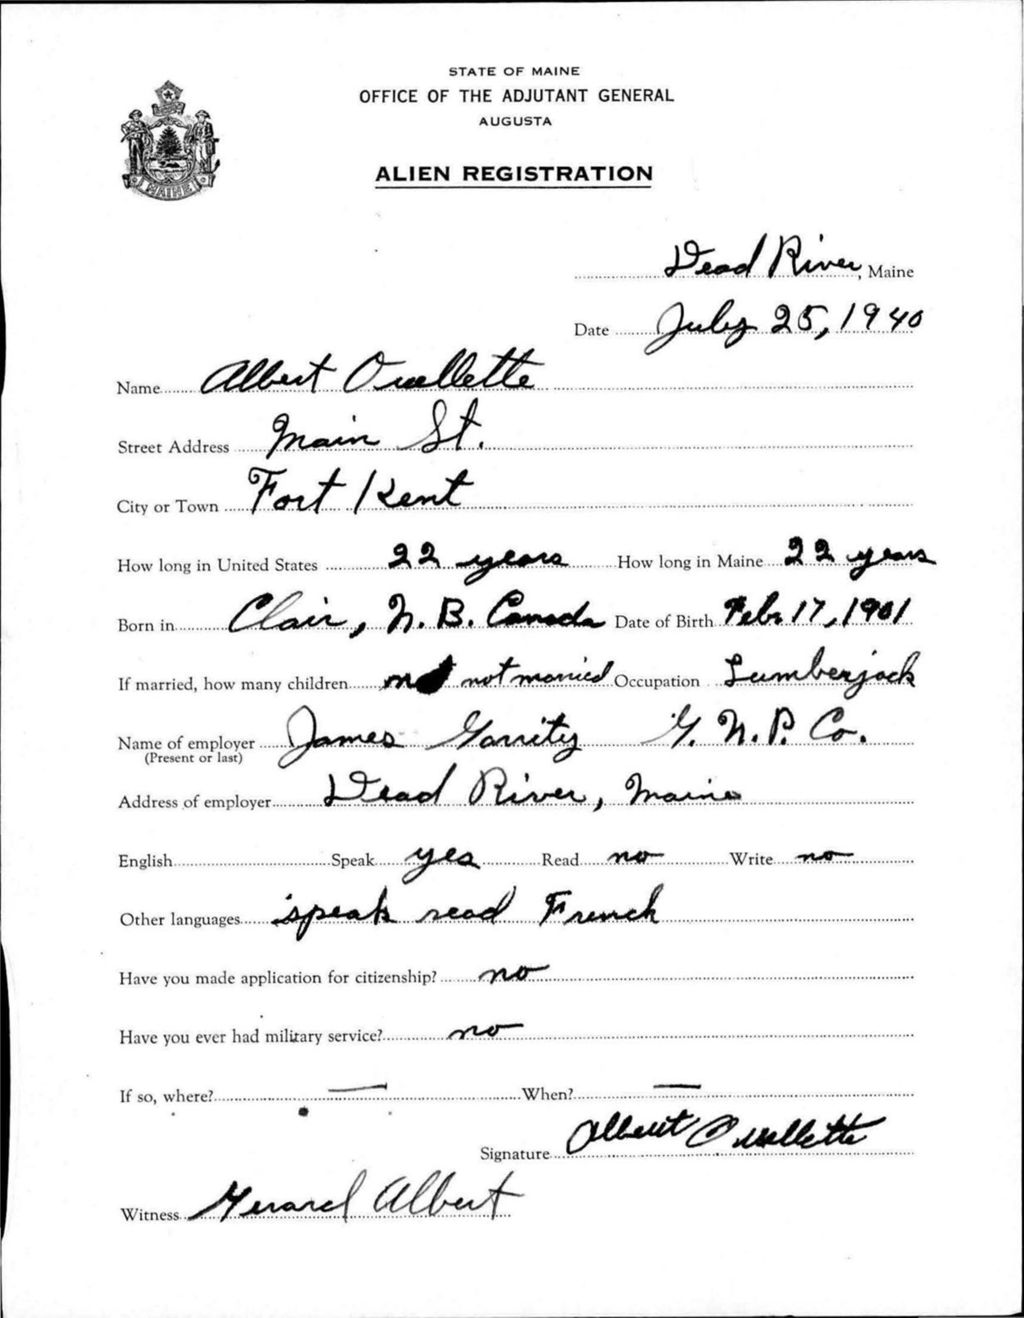 STATE OF MAINE
OFFICE OF THE ADJUTANT GENERAL
AUGUSTA
ALIEN REGISTRATION
MAINE
Dead River, Maine
Date July 25, 1940
Name Albert Ouellette
Street Address Main St.
City or Town Fort Kent
How long in United States 22 years How long in Maine 22 years
Born in Clair, N. B. Canada Date of Birth Feb. 17, 1901
If married, how many children not married Occupation Lumberjack
Name of employer James Garrity G. N. P. Co.
(Present or last)
Address of employer Dead River, Maine
English Speak yes Read no Write no
Other languages speak read French
Have you made application for citizenship? no
Have you ever had military service? no
If so, where? — When? —
Signature Albert Ouellette
Witness Gerard Albert